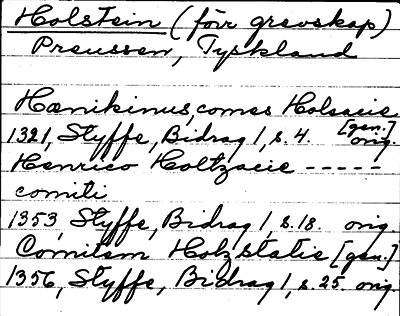 Holstein (förr grevskap)
Preussen, Tyskland
Hænikinus, comes Holsacie [gen.]
1321, Styffe, Bidrag 1, s. 4. orig.
Henrico Holtzacie -----
comiti
1353, Styffe, Bidrag 1, s. 18. orig.
Comitem Holzstatie [gen.]
1356, Styffe, Bidrag 1, s. 25. orig.